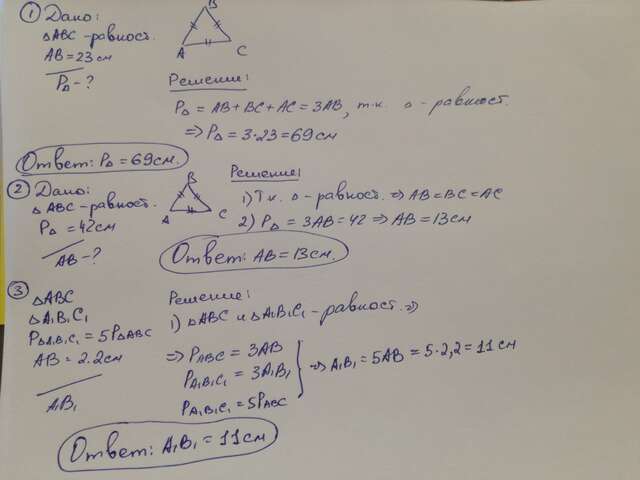 ① Дано:
△ABC - равност.
AB = 23 см
P△ - ?
B
A
C
Решение:
P△ = AB + BC + AC = 3AB, т.к. △ - равност.
⇒ P△ = 3·23 = 69 см
Ответ: P△ = 69 см.
② Дано:
△ABC - равност.
P△ = 42 см
AB - ?
B
A
C
Решение:
1) Т.к. △ - равност. ⇒ AB = BC = AC
2) P△ = 3AB = 42 ⇒ AB = 13 см
Ответ: AB = 13 см.
③
△ABC
△A₁B₁C₁
P△A₁B₁C₁ = 5P△ABC
AB = 2.2 см
A₁B₁
Решение:
1) △ABC и △A₁B₁C₁ - равност. ⇒
⇒ PABC = 3AB
PA₁B₁C₁ = 3A₁B₁
PA₁B₁C₁ = 5PABC
⇒ A₁B₁ = 5AB = 5·2,2 = 11 см
Ответ: A₁B₁ = 11 см